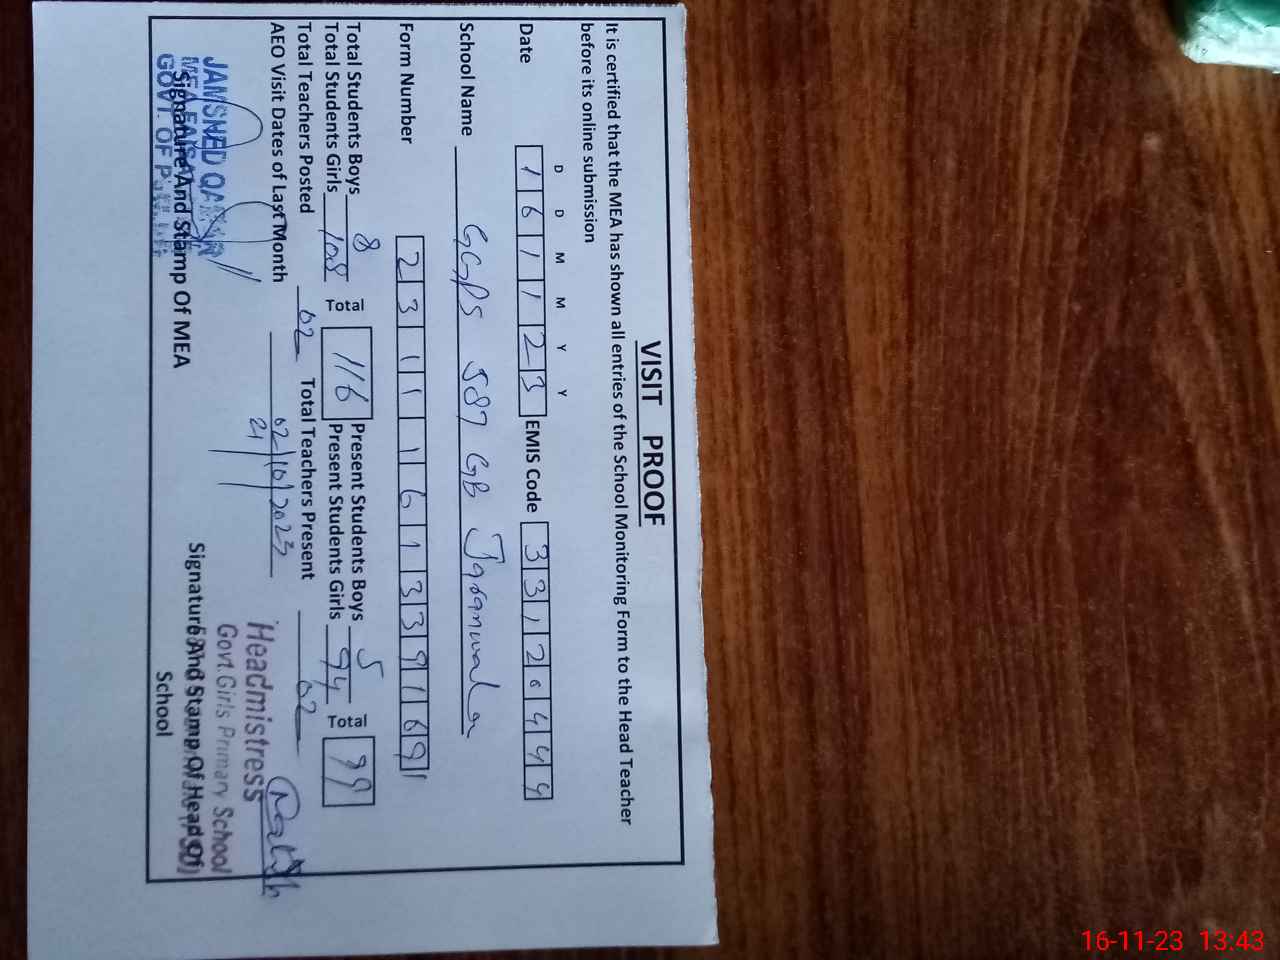 VISIT PROOF
It is certified that the MEA has shown all entries of the School Monitoring Form to the Head Teacher
before its online submission
D D M M Y Y
Date 1 6 1 1 2 3 EMIS Code 3 3 1 2 0 4 4 9
School Name GGPS 587 GB Jaranwala
Form Number 2 3 1 1 1 6 1 3 3 9 1 6 9 1
Total Students Boys 8 Total 116 Present Students Boys 5 Total 99
Total Students Girls 108 Present Students Girls 94
Total Teachers Posted 02 Total Teachers Present 02
AEO Visit Dates of Last Month 02/10/2023
21
JAMSHED
MEA
GOVT. OF
Signature And Stamp Of MEA
Headmistress
Govt. Girls Primary School
Signature And Stamp Of Head Of
School
16-11-23 13:43